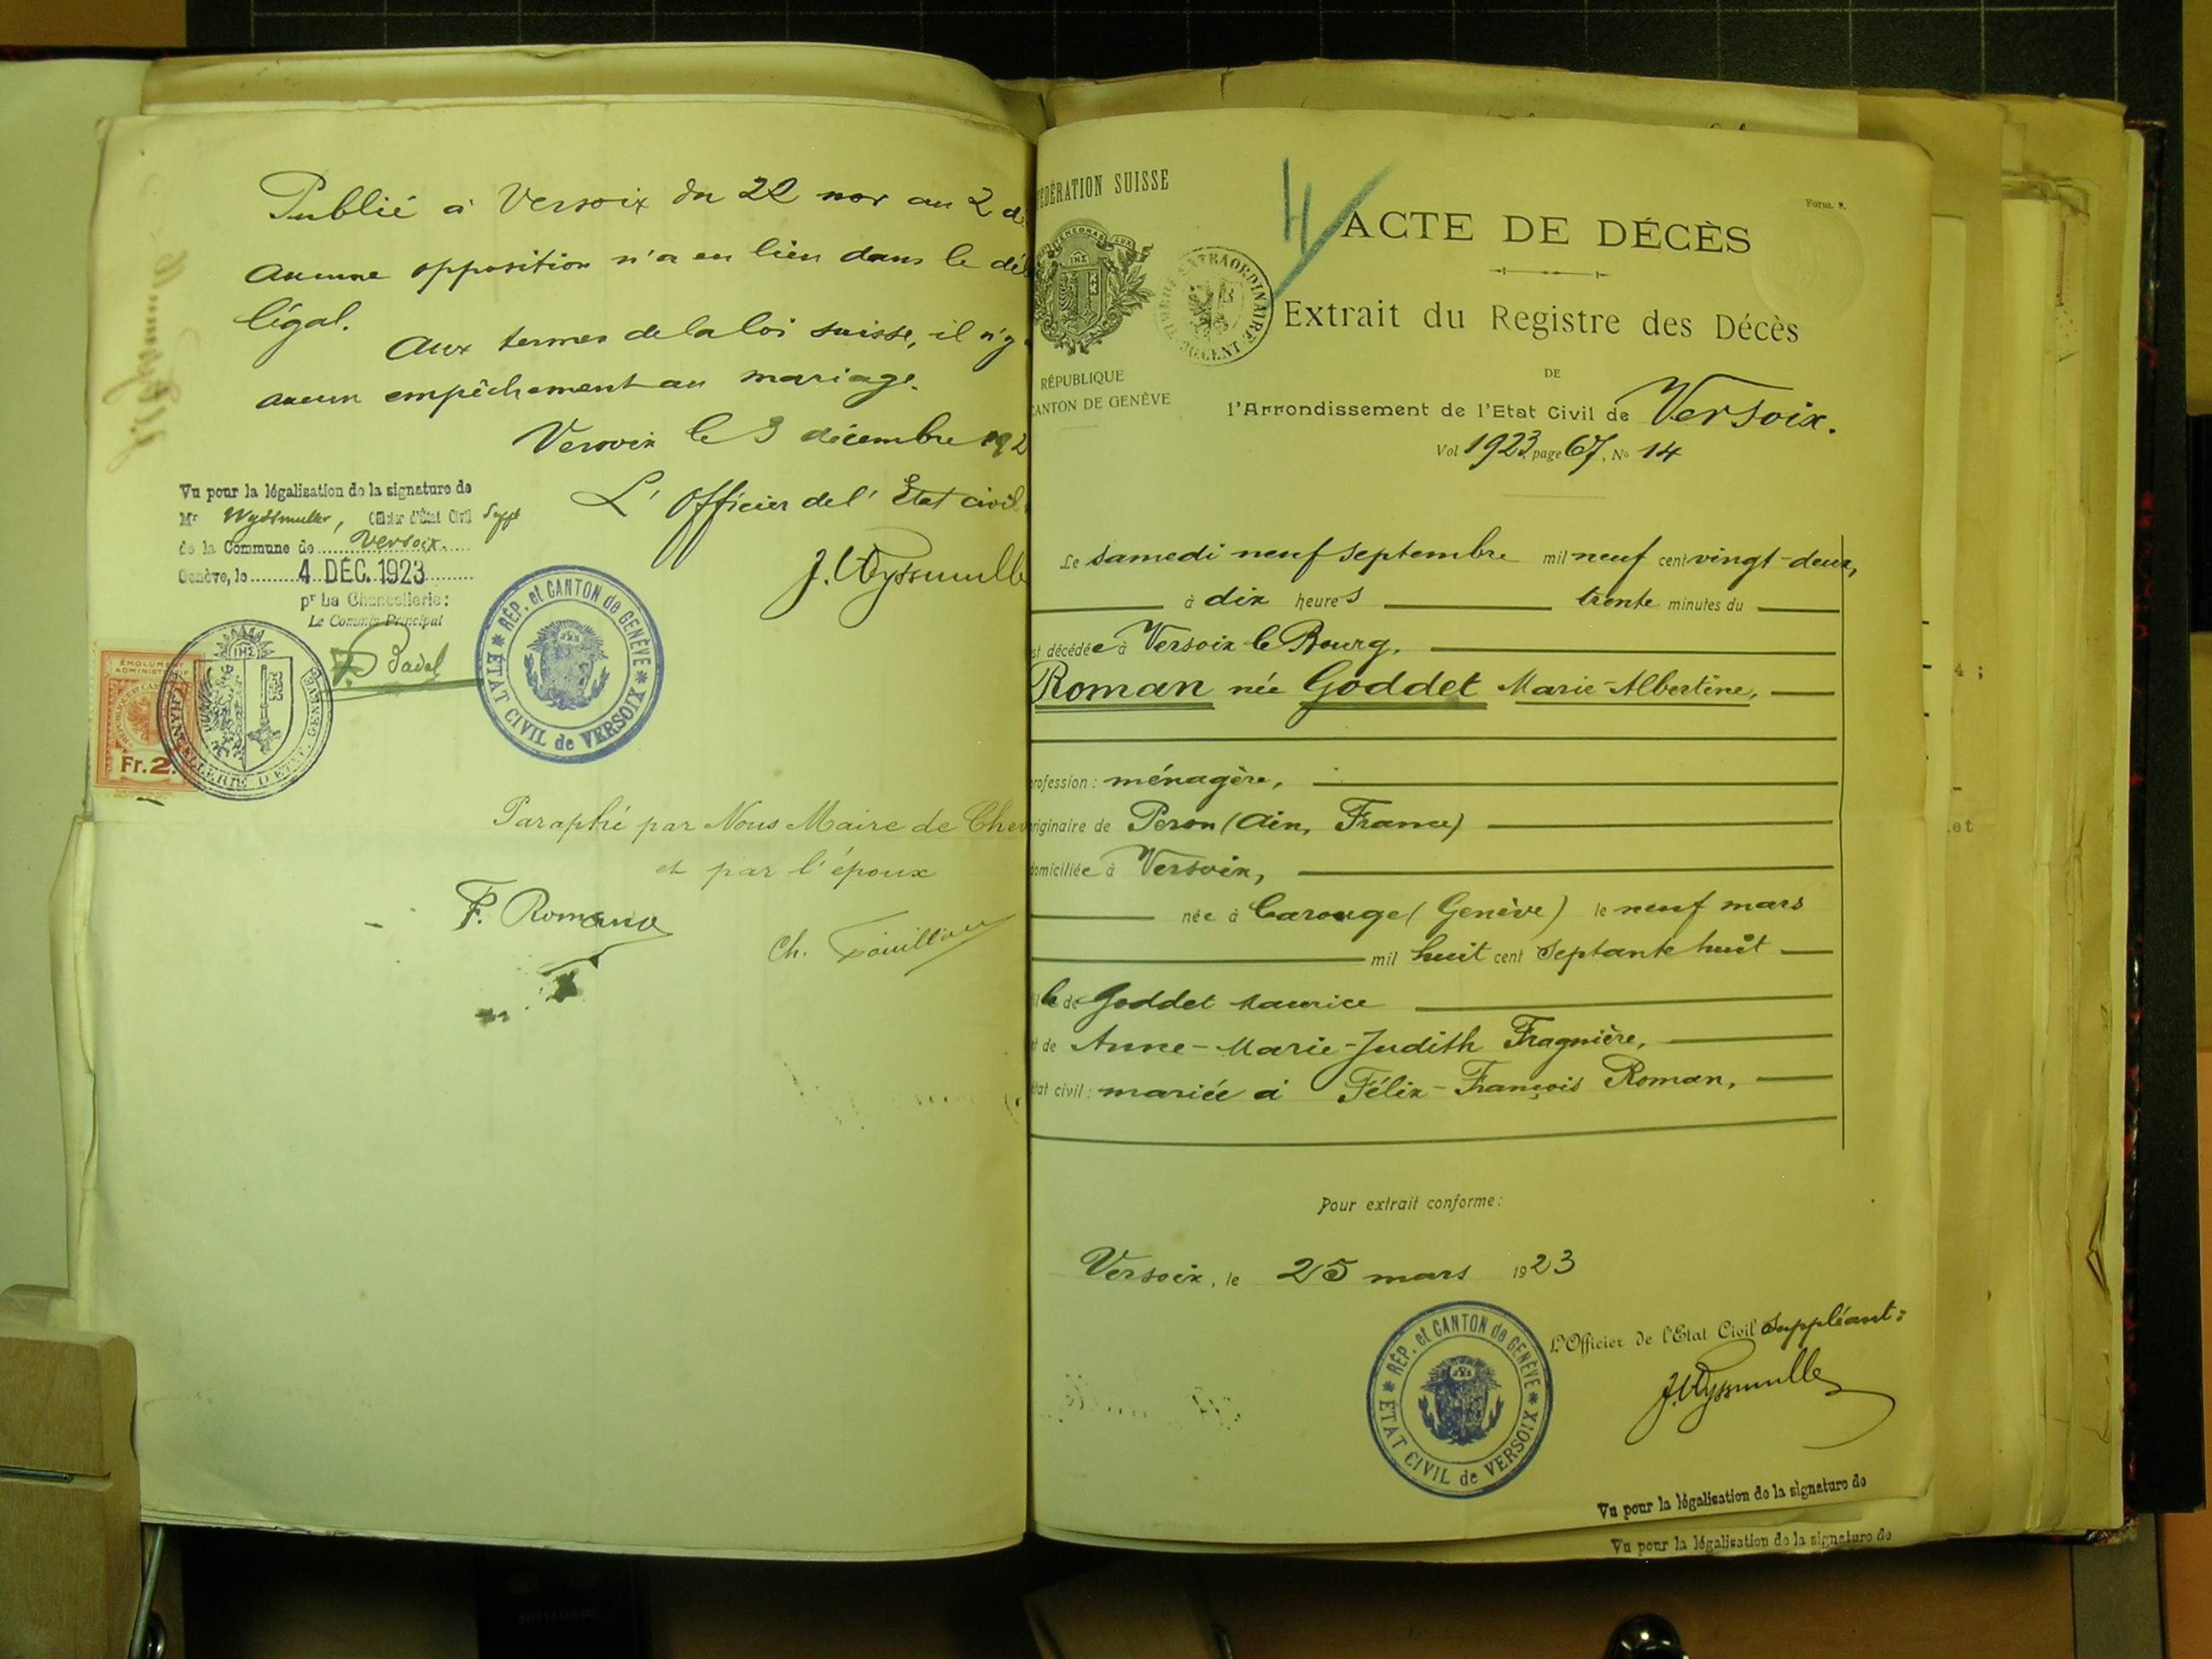 Publié à Versoix du 22 nov au 2 d
Aucune opposition n'a eu lieu dans le dél
légal.
Aux termes de la loi suisse, il n'y
aucun empêchement au mariage.
Versoix le 3 décembre 192
L'Officier de l'Etat civil
J. Wyssmulle
Vu pour la légalisation de la signature de
Mr Wyssmuller, Officier d'État Civil Suppl
de la Commune de Versoix.
Genève, le 4 DÉC. 1923
pr La Chancellerie:
Le Commis-Principal
Badel
RÉP. et CANTON de GENÈVE
ÉTAT CIVIL de VERSOIX
ÉMOLUMENT
ADMINISTRATIF
Fr. 2.
IHS
CHANCELLERIE D'ÉTAT GENÈVE
Paraphé par Nous Maire de Chev
et par l'époux
F. Romano
Ch.
FÉDÉRATION SUISSE
RÉPUBLIQUE
CANTON DE GENÈVE
TIMBRE EXTRAORDINAIRE
H
Form. 8.
ACTE DE DÉCÈS
Extrait du Registre des Décès
DE
l'Arrondissement de l'Etat Civil de Versoix.
Vol 1923, page 67, No 14
Le samedi neuf septembre mil neuf cent vingt-deux,
à dix heures trente minutes du
st décédée à Versoix le Bourg,
Roman née Goddet Marie-Albertine,
rofession: ménagère,
riginaire de Peron (Ain, France)
domiciliée à Versoix,
née à Carouge (Genève) le neuf mars
mil huit cent septante huit
ille de Goddet Maurice
et de Anne-Marie-Judith Fragnière,
état civil: mariée à Félix-François Roman,
Pour extrait conforme:
Versoix, le 25 mars 1923
L'Officier de l'Etat Civil suppléant:
J. Wyssmulle
RÉP. et CANTON de GENÈVE
ÉTAT CIVIL de VERSOIX
Vu pour la légalisation de la signature de
Vu pour la légalisation de la signature de
4 ;
.et